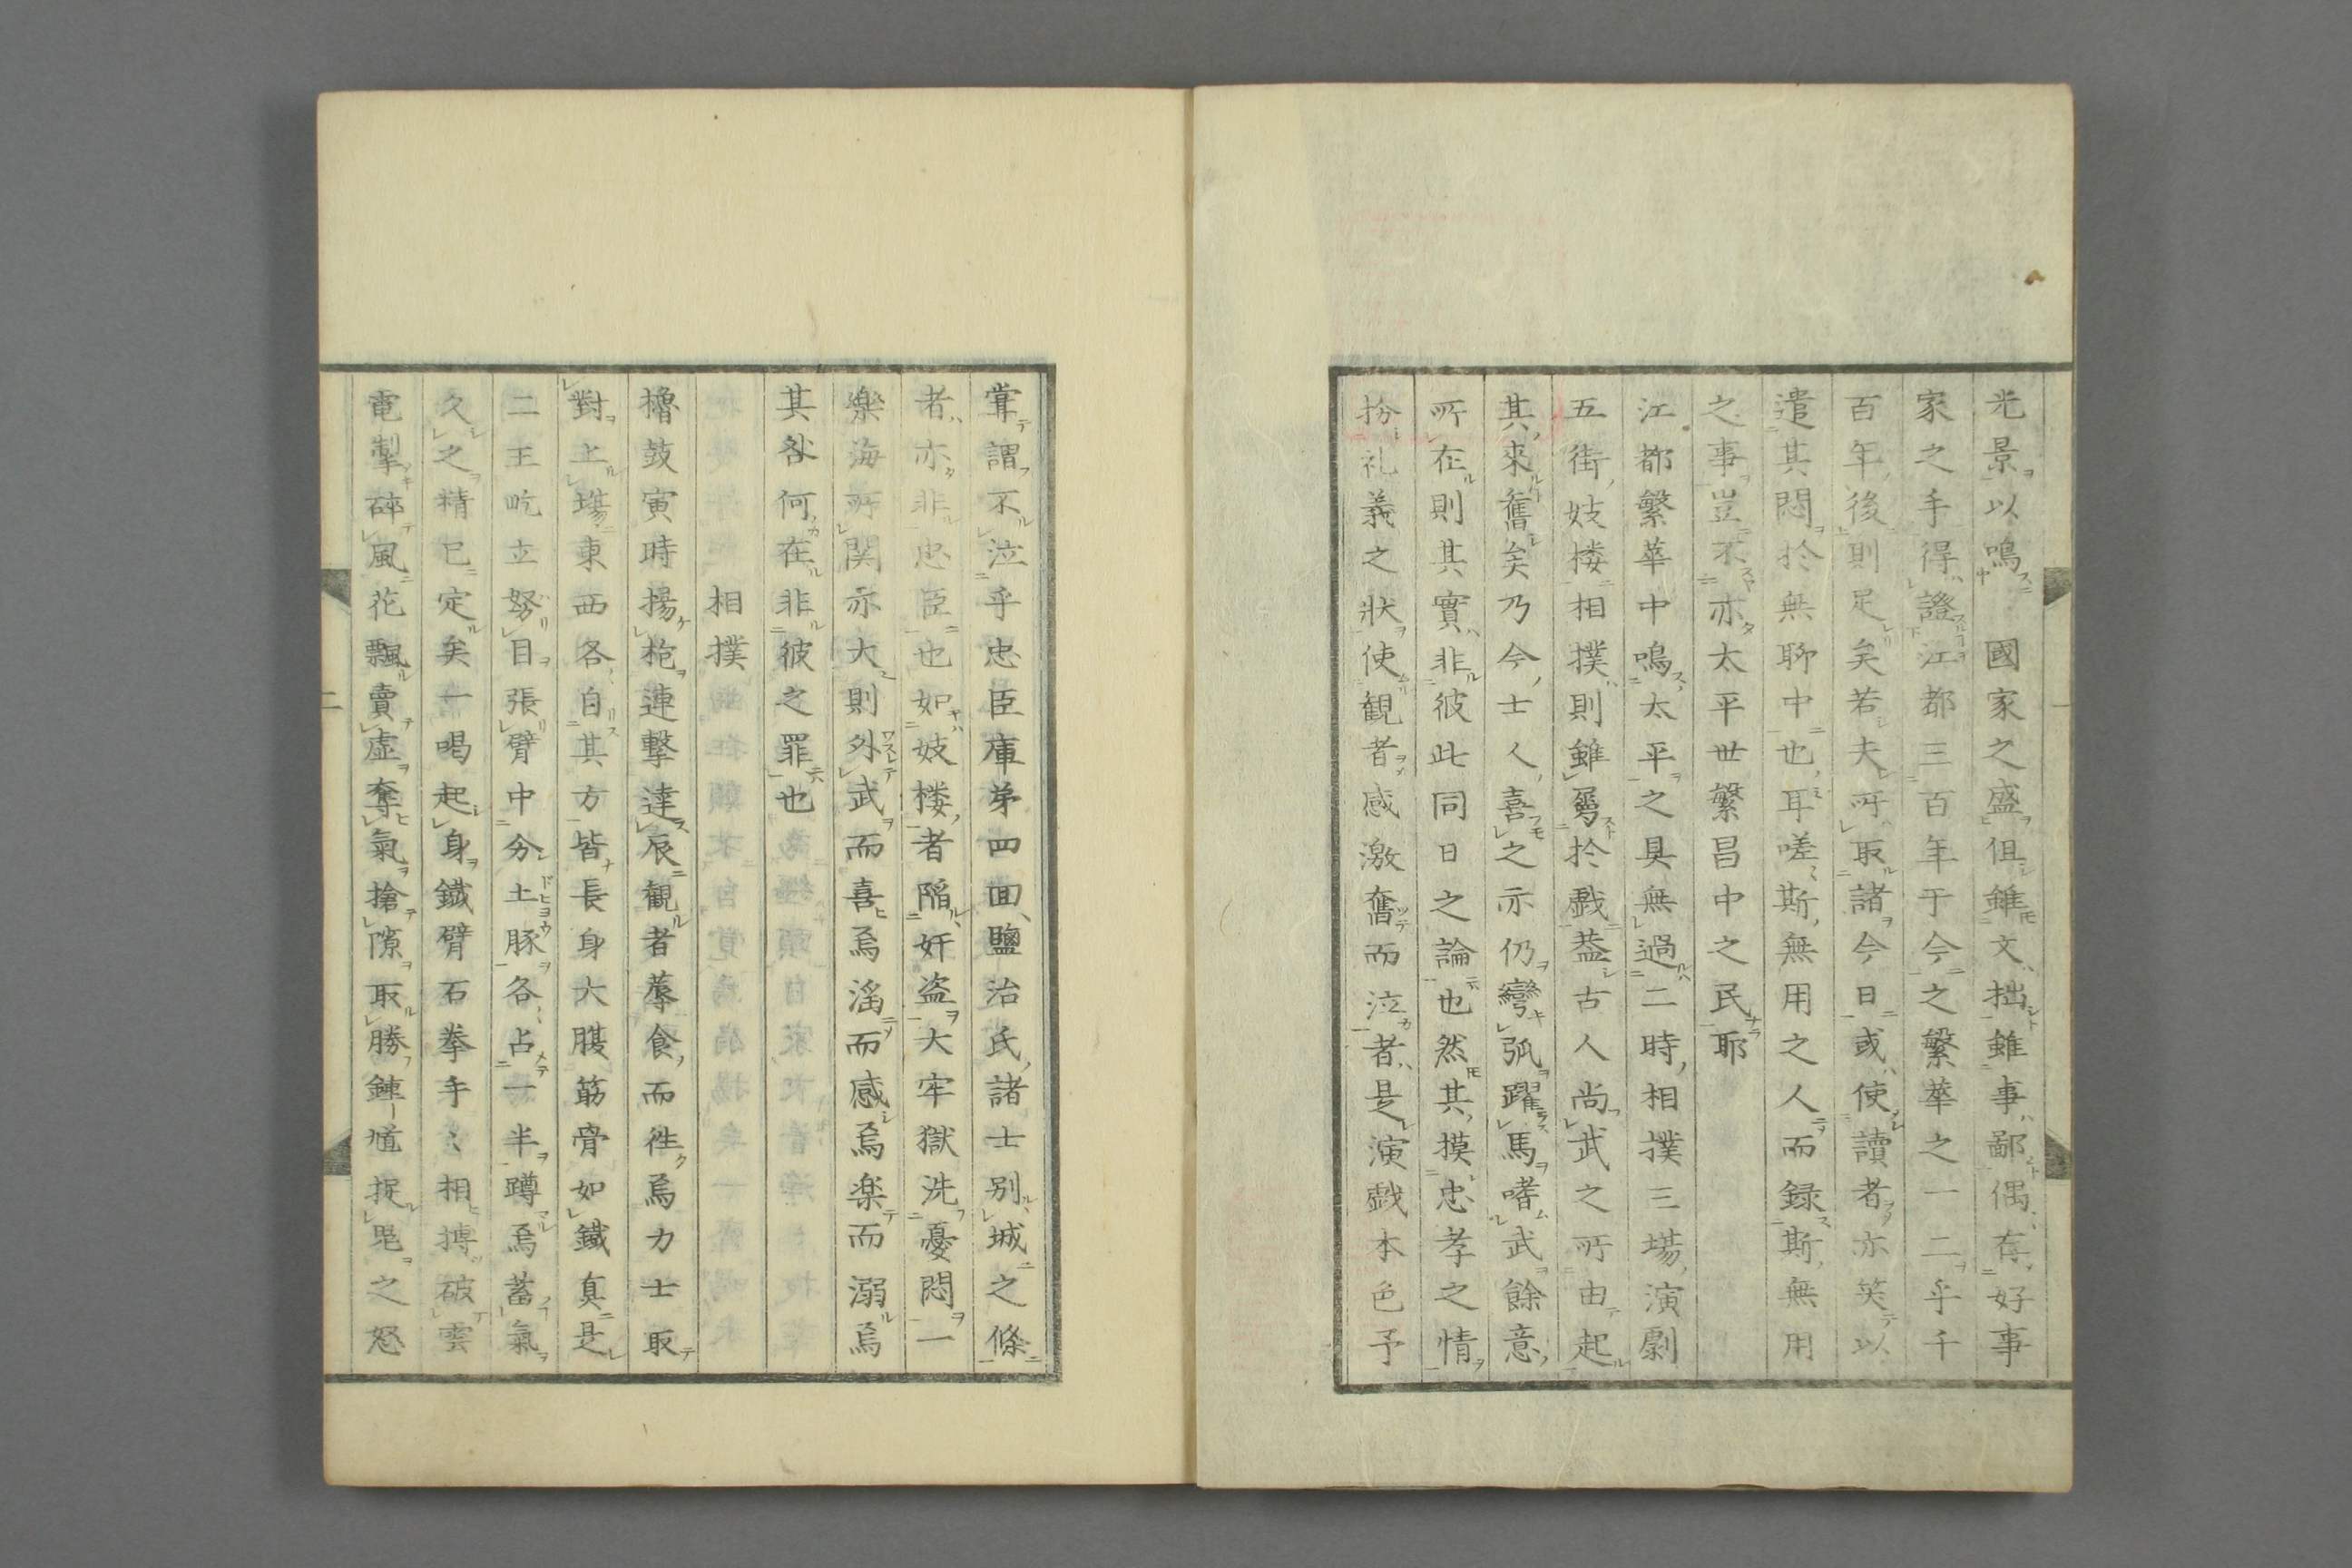 光景以鳴 國家之盛但雖文拙雖事鄙偶存好事
家之手得證江都三百年于今之繁華之一二乎千
百年後則足矣若夫所取諸今日或使讀者亦笑以
遣其悶於無聊中也耳嗟斯無用之人而録斯無用
之事豈不亦太平世繁昌中之民耶
江都繁華中鳴太平之具無過二時相撲三場演劇
五街妓楼相撲則雖屬於戲蓋古人尚武之所由起
其來舊矣乃今士人喜之亦仍彎弧躍馬嗜武餘意
所在則其實非彼此同日之論也然其摸忠孝之情
扮礼義之狀使観者感激奮而泣者是演戲本色予
甞謂不泣乎忠臣庫第四回鹽治氏諸士別城之條
者亦非忠臣也如妓楼者陥奸盗大牢獄洗憂悶一
樂海所関亦大則外武而喜焉滛而感焉楽而溺焉
其咎何在非彼之罪也
相撲
櫓鼓寅時揚枹連擊達辰観者蓐食而徃焉力士取
對上塲東西各自其方皆長身大腹筋骨如鐵真是
二王屹立努目張臂中分土豚各占一半蹲焉蓄氣
久之精已定矣一喝起身鐵臂石拳手〻相搏破雲
電掣碎風花飄賣虚奪氣搶隙取勝鍾馗捉鬼之怒
一
二